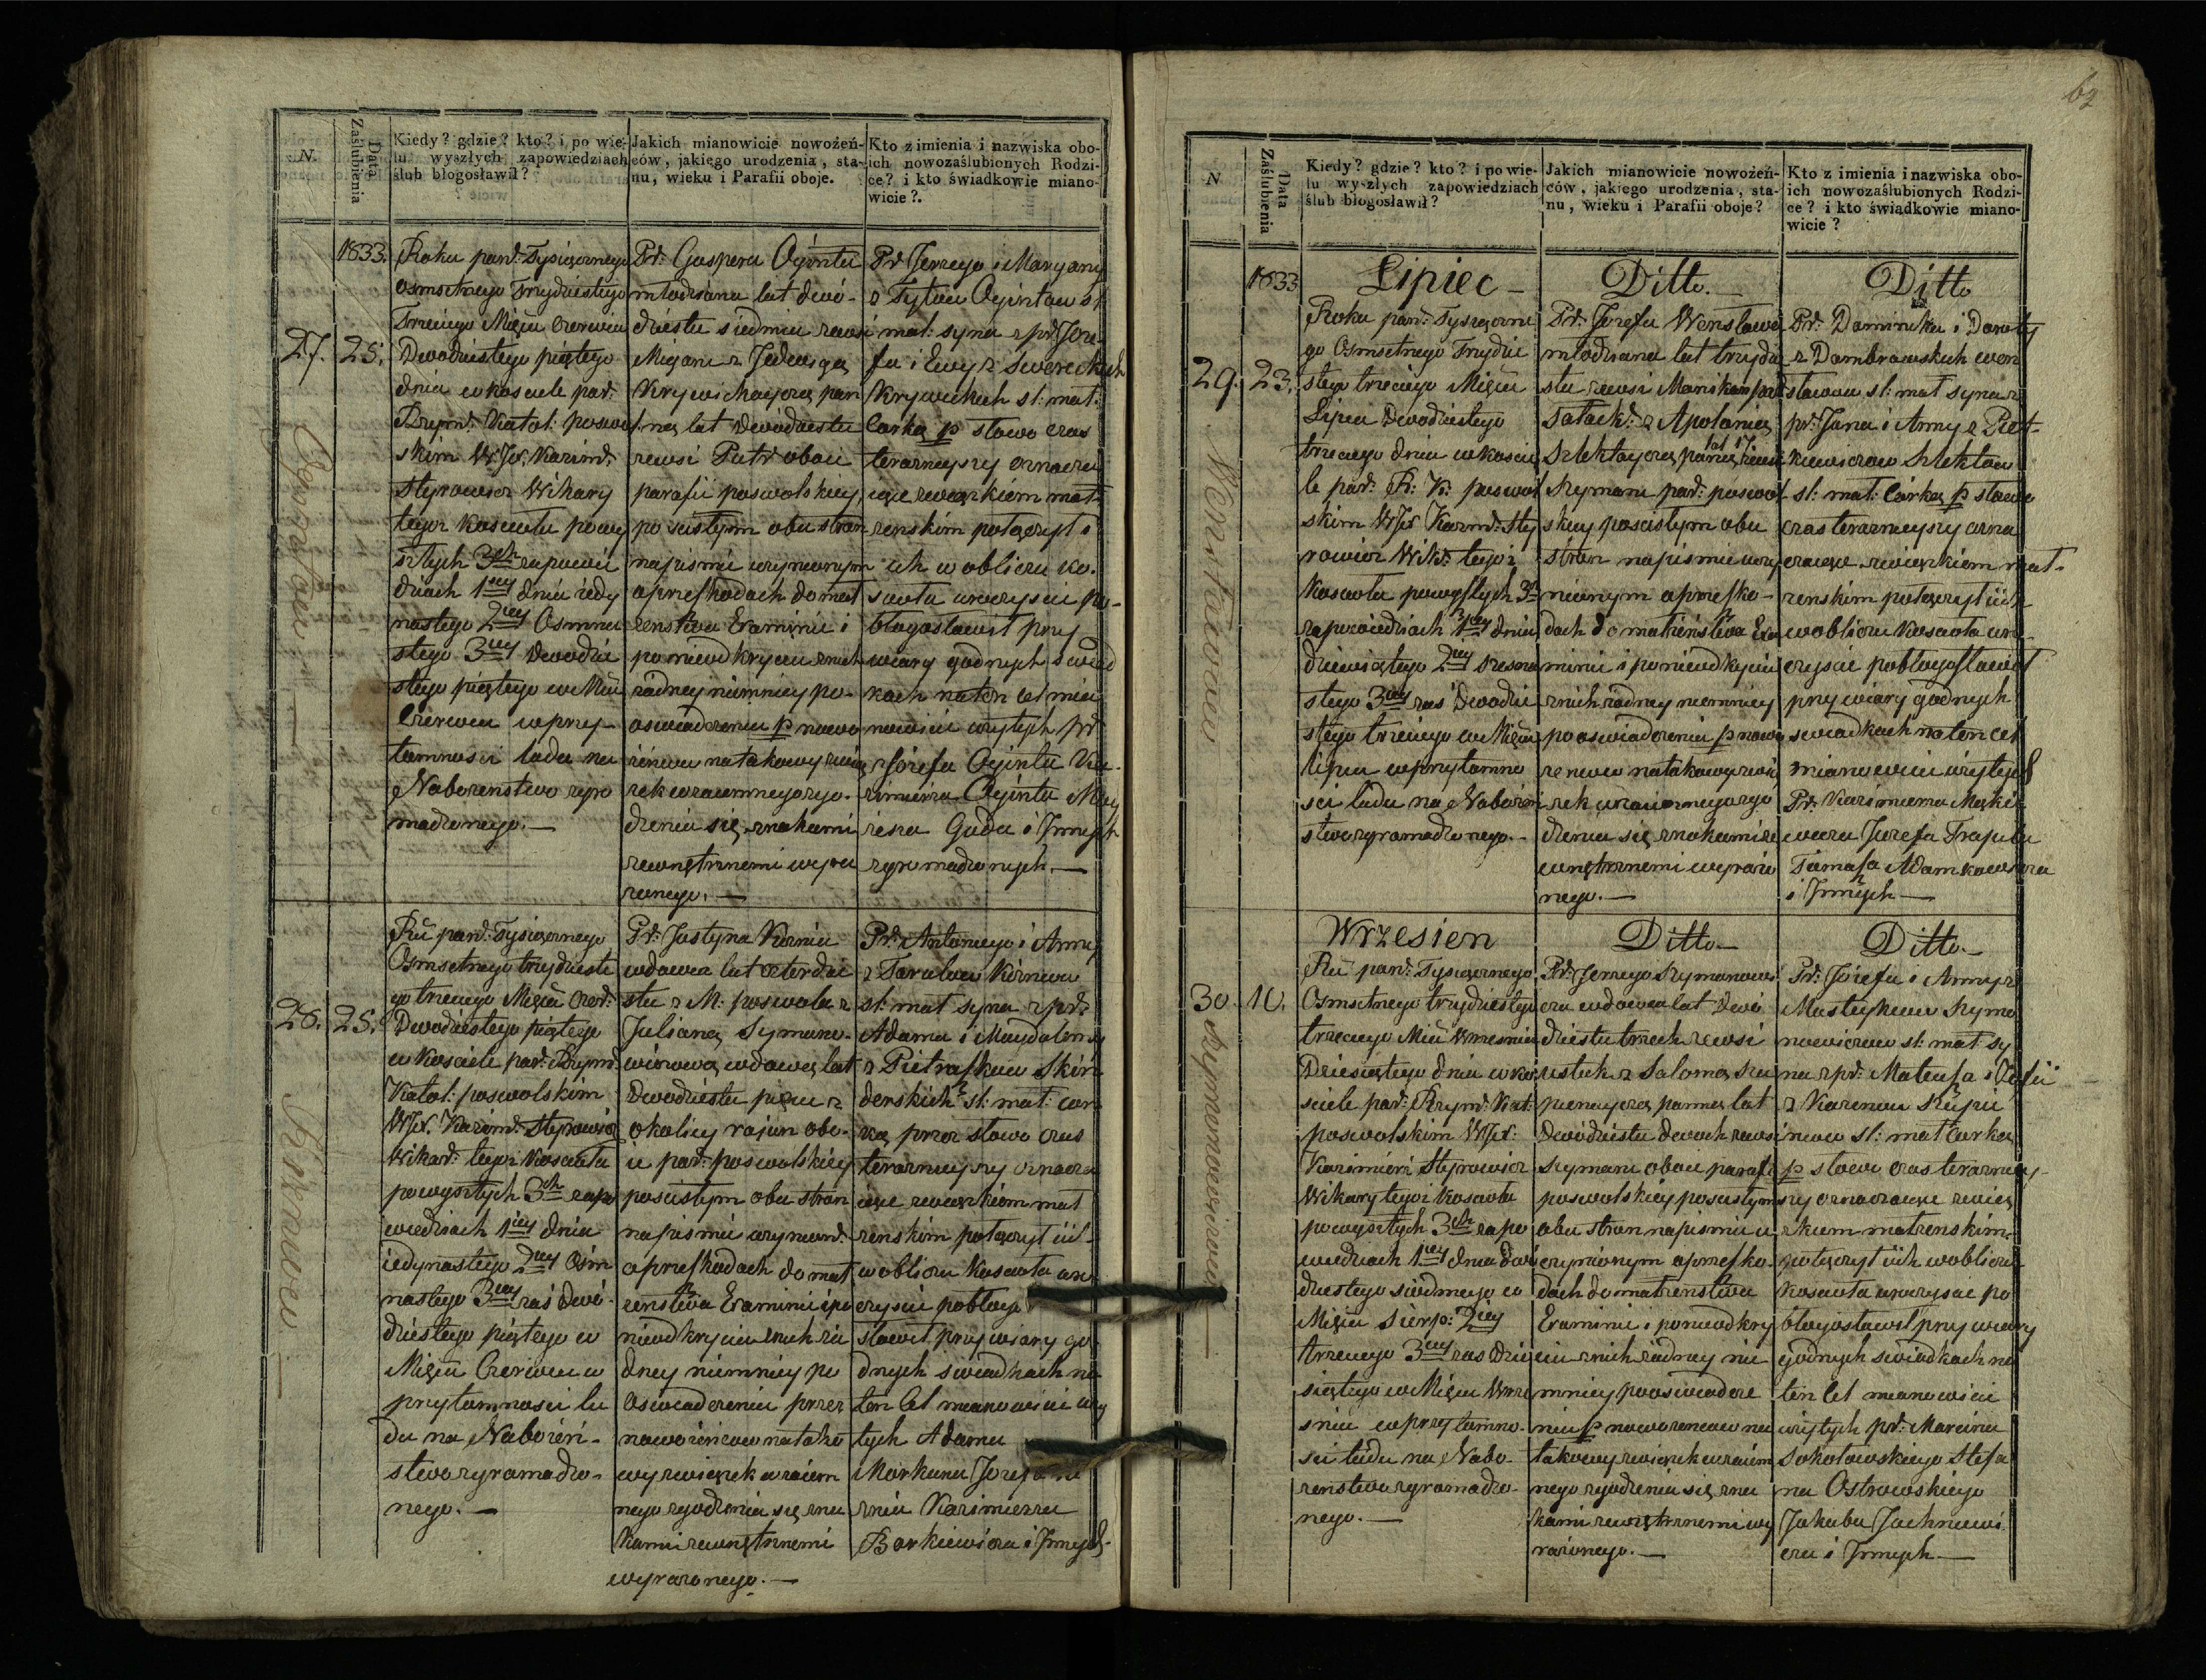 N.
Data Zaślubienia
Kiedy? gdzie? kto? i po wie-
lu wyszłych zapowiedziach
ślub błogosławił?
Jakich mianowicie nowożeń-
ców, jakiego urodzenia, sta-
nu, wieku i Parafii oboje.
Kto z imienia i nazwiska obo-
ich nowozaślubionych Rodzi-
ce? i kto świadkowie miano-
wicie?.
1833.
27.
25.
Roku pand: Tysiącznego
Osmsetnego Trzydziestego
Trzeciego Mięca Czerwca
Dwodziestego piątego
dnia w kosciele par:
Rzymd: Katol: poswol
skim WJX. Kazimd:
Styrowicz Wikary
tegoz Kosciołu po wy
szłych 3ch zapowie
dziach 1szey dnia iedy
nastego 2iey Osmna
stego 3iey Dwodzie
stego piątego w Mcu
Czerwcu w przy-
tomnosci ludu na
Naborenstwo zgro
madzonego.—
Pd: Gaspera Ogintu
młodziana lat dwó-
dziestu siedmiu zewsi
Migany z Jadwigą
Krywickayczą pan
ną lat Dwódziestu
zewsi Putr oboie
parafii poswolskiey
po scisłym obu stron
na pismie uczynionym
o przeszkodach do mał
żenstwa Examinie i
po nieodkryciu znich
żadney niemniey po-
oswiadczeniu p nowo
żeńcow na takowy zwią
zek wzaiemnego zgo-
dzenia się znakami
zewnętrznemi wyra
żonego.—
Pd Jerzego i Maryany
z Tytow Ogintow sl:
mał: syna z pd Joze-
fa i Ewy z Swereckich
Krywickich sl: mał:
Corką p słowo czas
terazniejszy oznacza
iące związkiem mał-
żenskim połączył i
ich w obliczu ko-
scioła uroczyscie po-
błogosławił przy
wiary godnych swiad
kach na ten cel mia
nowicie wziętych pd
Józefa Oginta Ka-
zimierza Oginta Mac
ieia Guda i Innych
zgromadzonych.—
28.
25.
Ru pand: Tysiącznego
Osmsetnego trzydzieste
go trzeciego Mięca Czer:
Dwodziestego piątego
w Kosciele par: Rzymd:
Katol: poswolskim
WJX. Kazimd: Styrowicz
Wikard: tegoz Kosciołu
po wyszłych 3ch zapo
wiedziach 1szey dnia
iedynastego 2iey Osm
nastego 3iey zaś Dwó-
dziestego piątego w
Mięcu Czerwcu w
przytomnosci lu
du na Naboień-
stwo zgromadzo-
nego.—
Pd: Justyna Korniu
wdowca lat czterdzie
stu z M: poswola z
Julianą Symano-
wiczową wdową lat
Dwodziestu pięciu z
okolicy rajun obo-
ie par: poswolskiey
po scisłym obu stron
na pismie uczyniond:
o przeszkodach do mał
żenstwa Examinie i po
nieodkryciu znich ża
dney niemniey po
oswiadczeniu przez
nowożeńcow na tako
wy związek wzaiem
nego zgodzenia się zna
kami zewnętrznemi
wyrazonego.—
Pd: Antoniego i Anny
sl: mał syna z pd:
Adama i Magdaleny
z Pietraszkow Skin
derskich sl: mał: cor
ką przez słowo czas
teraznieyszy oznacza
iące związkiem mał
żenskim połączył iich
w obliczu Koscioła uro
czyscie pobłogo
sławił przy wiary go
dnych swiadkach na
ten Cel mianowicie wzię
tych Adama
Kazimierza
Barkiewicza i Innych.
Ogintow.—
Korniow.—
62
N
Data Zaślubienia
Kiedy? gdzie? kto? i po wie-
lu wyszłych zapowiedziach
ślub błogosławił?
Jakich mianowicie nowożeń-
ców, jakiego urodzenia, sta-
nu, wieku i Parafii oboje?
Kto z imienia i nazwiska obo-
ich nowozaślubionych Rodzi-
ce? i kto świadkowie miano-
wicie?
1833
Lipiec—
Ditto.—
Ditto
29.
23.
Roku pand: Tysiączne
go Osmsetnego Trzydzie
stego trzeciego Mięca
Lipca Dwodziestego
trzeciego dnia w koscie
le par: R: K: poswol
skim WJX Kazmd: Sty
rowicz Wikd: tegoż
Kosciołu po wyszłych 3ch
zapowiedziach 1szey dnia
dziewiątego 2iey szesna
stego 3iey zaś Dwodzie
stego trzeciego w Mięcu
lipcu w przytomno
sci ludu na Naboień
stwo zgromadzonego.—
Pd: Jozefa Wenslawo
młodziana lat trzydzie
stu zewsi Manikan par:
Szlektayczą panną lat 17. zewsi
Szymani par: poswol
skiey po scisłym obu
stron na pismie uczy
nionym o przeszko-
dach do małżeństwa Exa
minie i po nieodkryciu
znich żadney niemniey
po oswiadczeniu p nowo
żencow na takowy zwią
zek wzaiemnego zgo
dzenia się znakami ze
wnętrznemi wyrażo
nego.—
Pd: Dominika i Doroty
z Dombrowskich Wen
slawow sl: mał syna z
pd: Jana i Anny z Piet-
kiewiczow Szlektow
sl: mał: Córką p słowo
czas teraznieyszy ozna
czaiące związkiem mał-
żenskim połączył iich
w obliczu Kosciola uro
czyscie pobłogosławił
przy wiary godnych
swiadkach na ten cel
mianowicie wziętych
Pd: Kazimierza Mackie
wicza Jozefa Trapulu
Tomasza Adamkowicza
i Innych—
Wrzesien
Ditto—
Ditto.—
30.
10.
Ru pand: Tysiącznego
Osmsetnego trzydziestego
trzeciego Mcu Wrzesnia
Dziesiątego dnia w ko
sciele par: Rzymd: Kat:
poswolskim WJX:
Kazimierz Styrowicz
Wikary tegoż Kosciołu
po wyszłych 3ch zapo
wiedziach 1szey dnia Dwó
dziestego siodmego w
Mięcu Sierp: 2iey
trzeciego 3iey zas Dzie
siątego w Mięcu Wrze
sniu w przytomno-
sci ludu na Nabo-
zenstwo zgromadzo-
nego.—
Pd: Jerzego Szymanowi
cza wdowca lat Dwó
dziestu trzech zewsi
pienayczą panną lat
Dwódziestu dwoch zewsi
Szymani oboie parafii
poswolskiey po scisłym
obu stron na pismie u
czynionym o przeszko-
dach do małżenstwa
Examinie i po nieodkry
ciu znich żadney nie
mniey po oswiadcze
niu p nowożencow na
takowy związek wzaiem
nego zgodzenia się zna
kami zewnętrznemi wy
rażonego.—
Pd: Józefa i Anny z
nowiczow sl: mał: sy
na z pd: Mateusza i Zofii
sl: mał Corką
p słowo czas terazniey-
szy oznaczaiące zwią
zkiem małżenskim
połączył iich w obliczu
Kosciola uroczyscie po
błogosławił przy wiary
godnych swiadkach na
ten cel mianowicie
wziętych pd: Marcina
Sokołowskiego Stefa
na Ostrowskiego
Jakuba Jachnowi
cza i Innych—
Wenslawow
Szymonowiczow—